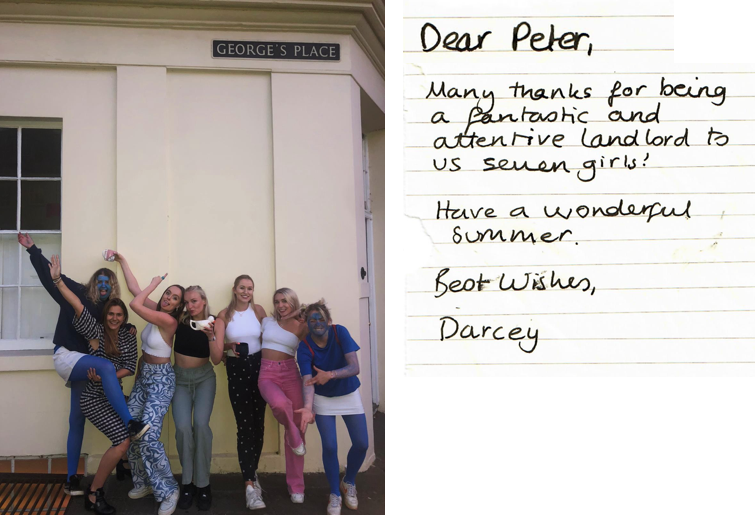 GEORGE'S PLACE
Dear Peter,
Many thanks for being
a fantastic and
attentive landlord to
us seven girls!
Have a wonderful
summer.
Best Wishes,
Darcey